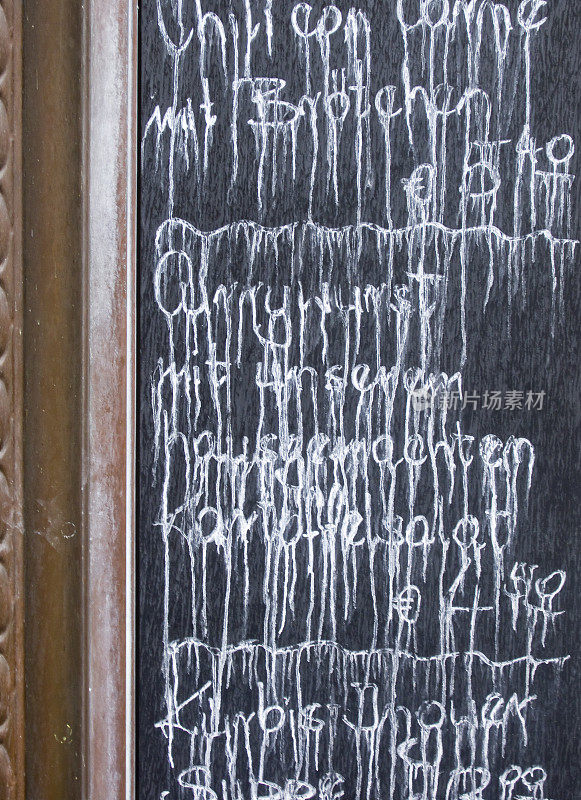 Chili con Carne
mit Brötchen
€ 5 40
Currywurst
mit unserem
hausgemachten
Kartoffelsalat
€ 4 40
Kürbis Ingwer
Suppe
新片场素材